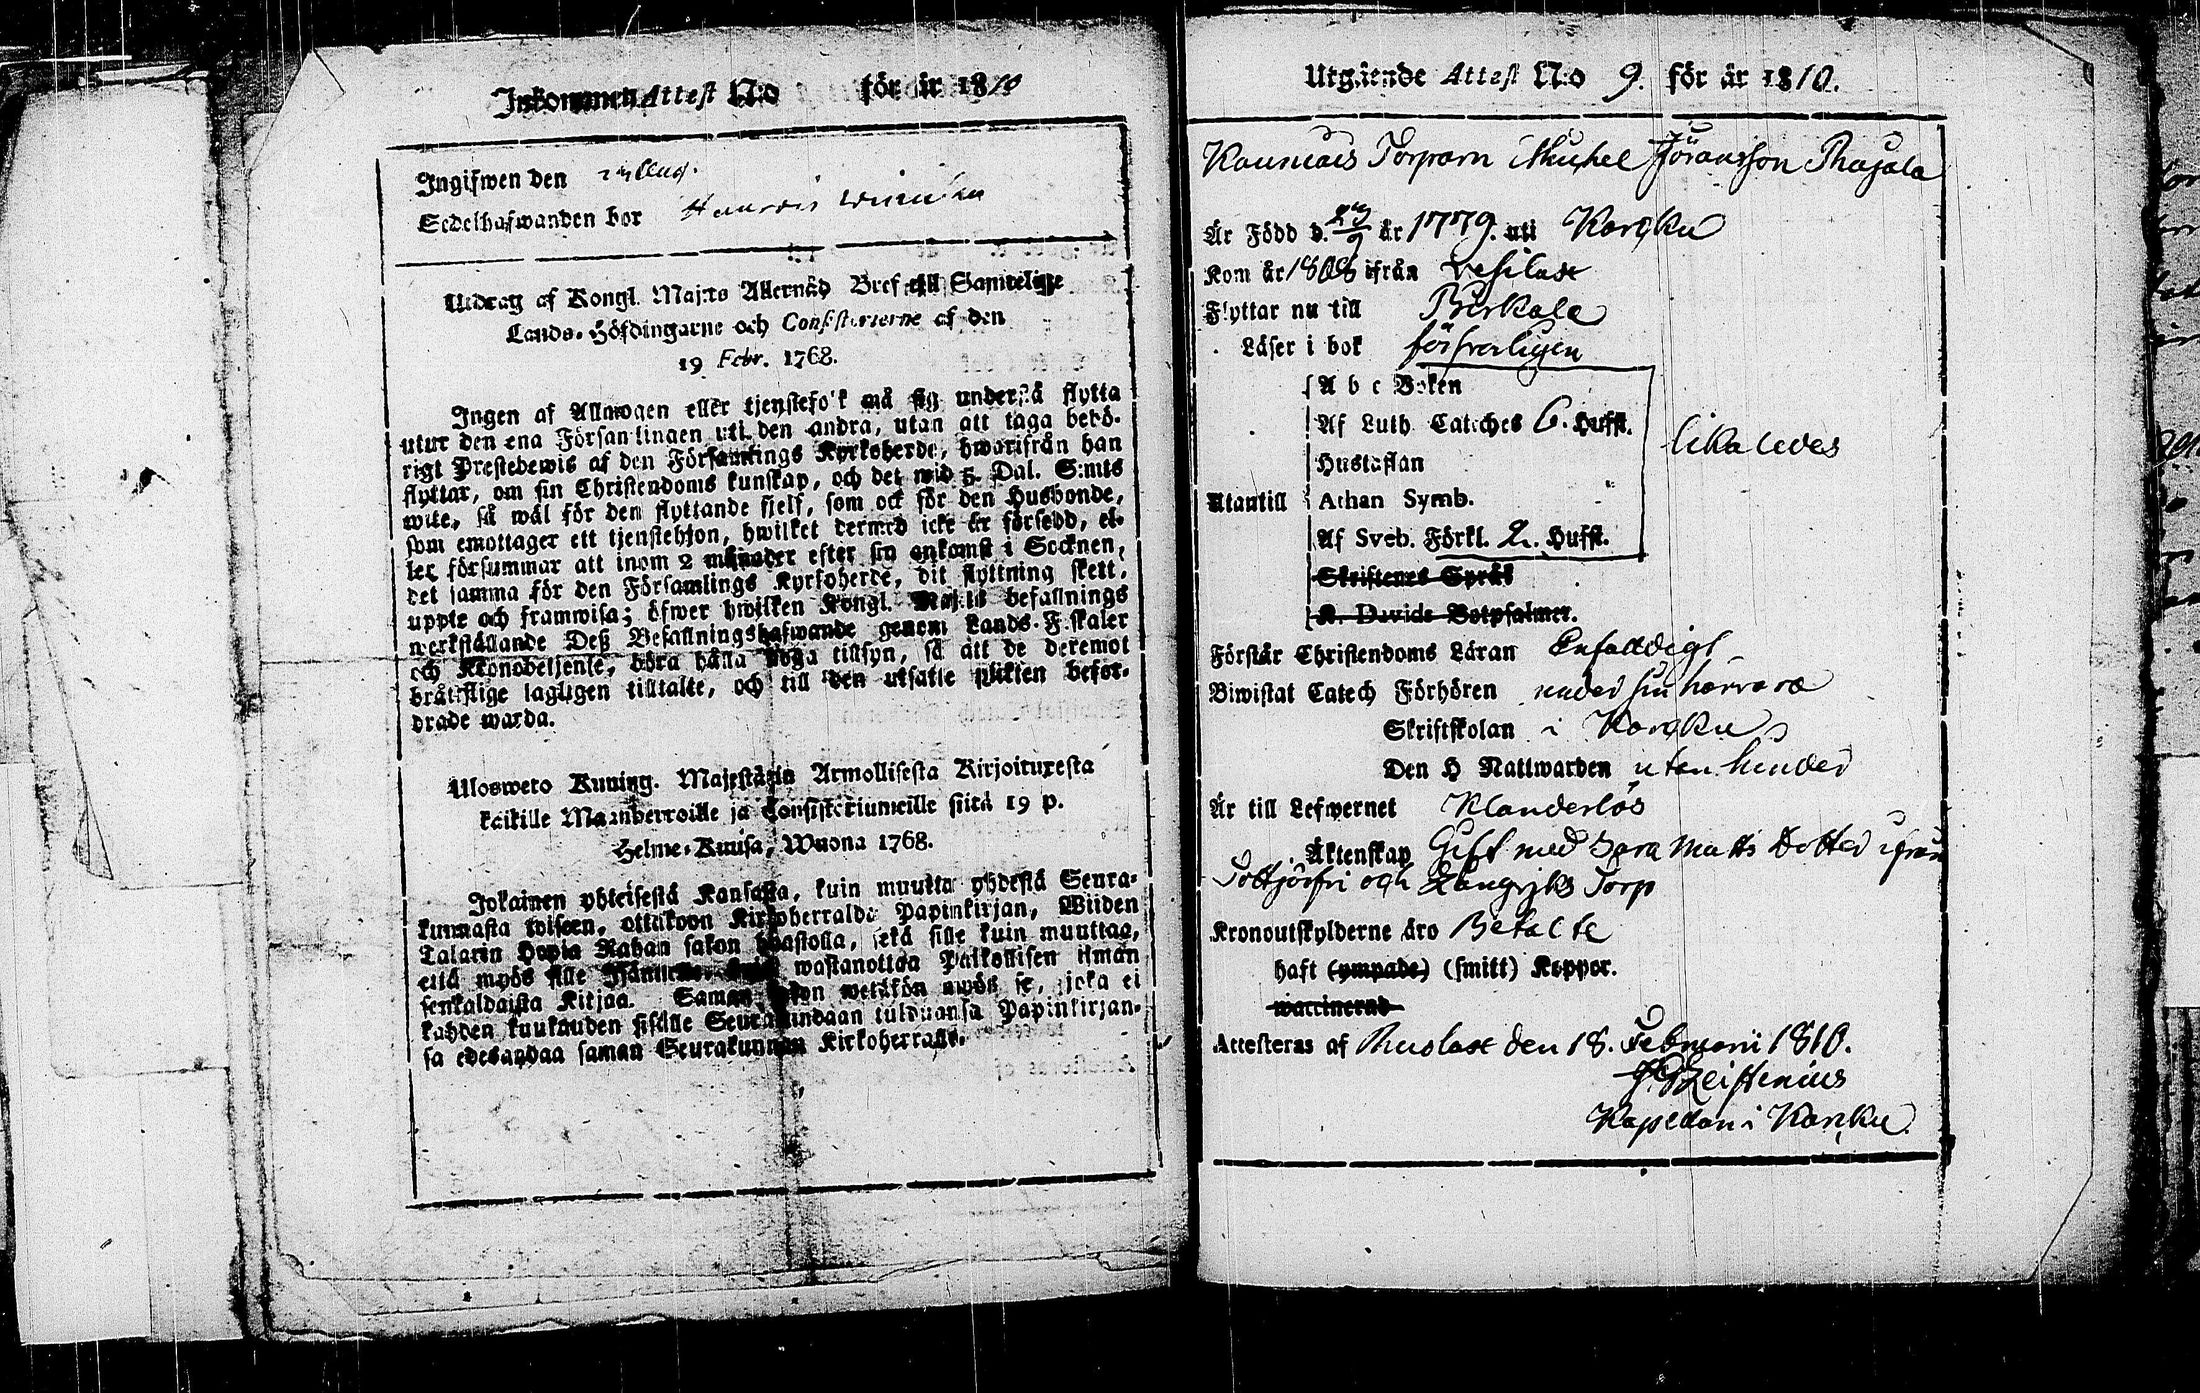 Inkommen Attest N:o för år 1810
Ingifwen den
Sedelhafwanden bor
Utdrag af Kongl. Maj:ts Allernåd Bref till Samtelige
Lands-Höfdingarne och Consistorierne af den
19 Febr. 1768.
Ingen af Allmogen eller tjenstefolk må sig understå flytta
utur den ena Församlingen uti den andra, utan att taga behö-
rigt Prestebewis af den Församlings Kyrkoherde, hwarifrån han
flyttar, om sin Christendoms kunskap, och det wid 5. Dal. S:mts
wite, så wäl för den flyttande sjelf, som ock för den Husbonde,
som emottager ett tjenstehjon, hwilket dermed icke är försedd, el-
ler försummar att inom 2 månader efter sin ankomst i Socknen,
det samma för den Församlings Kyrkoherde, dit flyttning skett,
uppte och framwisa; öfwer hwilken Kongl. Maj:ts befallnings
werkställande Deß Befallningshafwande genom Lands-Fiskaler
och Kronobetjente, böra hålla noga tillsyn, så att de deremot
bråttslige lagligen tilltalte, och till den utsatte plikten beför-
drade warda.
Ulosweto Kuning. Majestätin Armollisesta Kirjoituxesta
kaikille Maanherroille ja Consistoriumeille siitä 19 p.
Helme-Kuusa, Wuona 1768.
Jokainen yhteisestä Kansasta, kuin muutta yhdestä Seura-
kunnasta toiseen, ottakoon Kirkoherralda Papinkirjan, Wiiden
Talarin Hopia Rahan sakon haastolla, sekä sille kuin muuttaa,
että myös sille Isännälle, kuin wastanottaa Palkollisen ilman
senkaldaista Kirjaa. Saman sakon wetäkön myös se, joka ei
kahden kuukauden sisälle Seurakundaan tulduansa Papinkirjan-
sa edesandaa saman Seurakunnan Kirkoherralle.
Utgående Attest N:o 9. för år 1810.
Kauniais Torparn Michel Jöransson Rajala
Är Född d. 29/9 år 1779. uti Karcku
Kom år 1808 ifrån Vesilax
Flyttar nu till Birkala
Läser i bok försvarligen
A b c Boken
Af Luth. Cateches 6. Hufst.
Hustaflan
likaledes
Utantill Athan Symb.
Af Sveb. Förkl. 2. Hufst.
Skriftenes Språk
K. Davids Botpsalmer.
Förstår Christendoms Läran Enfaldigt
Biwistat Catech Förhören under sin härvara
Skriftskolan i Karcku
Den H Nattwarden utan hinder
Är till Lefwernet Klanderlös
Äktenskap Gift med Sara Matts Dotter ifrån
Tottjärfri och Långrijks Torp
Kronoutskylderne äro Betalte
haft (ympade) (smitt) Koppor.
waccinerad
Attesteras af Suolax den 18. Februarii 1810.
Kapellan i Karcku.